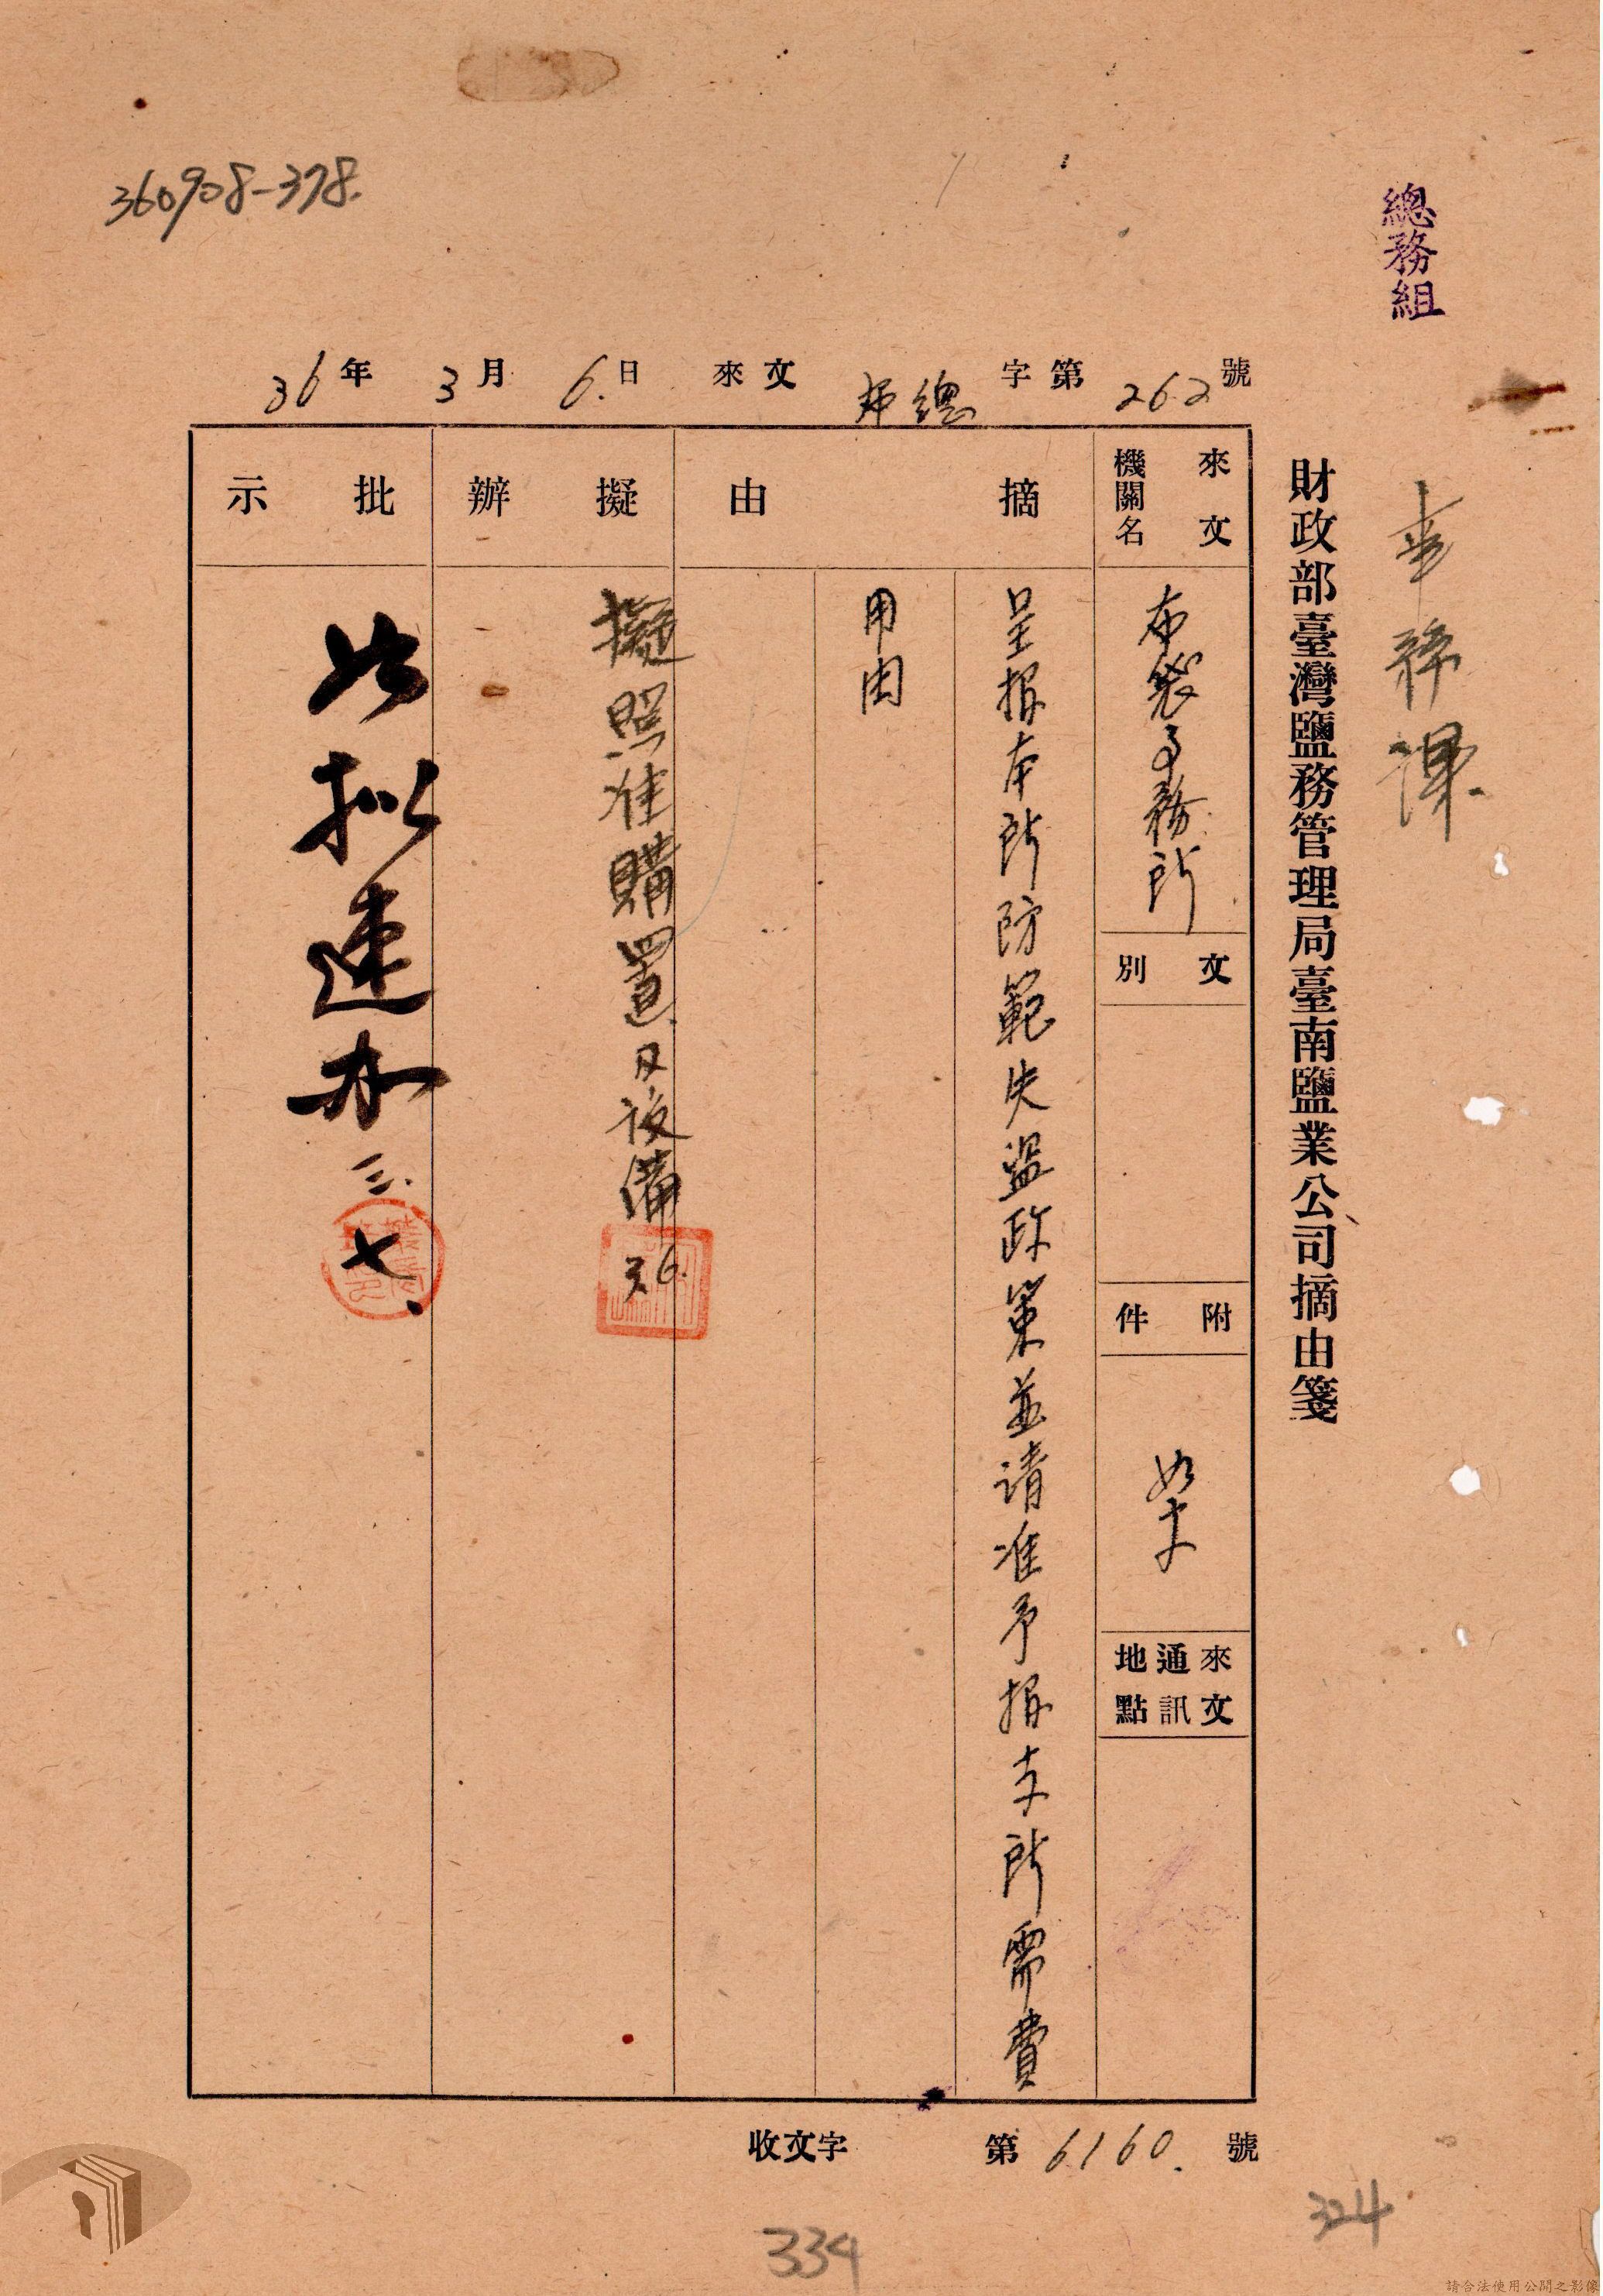 360908-378.
總務組
財政部臺灣鹽務管理局臺南鹽業公司摘由箋
36年3月6.日來文布總字第262號
來文機關名
布袋事務所
文別
附件
如文
來文通訊地點
摘由
呈報本所防範失盜政策並請准予報支所需費
用由
擬辦
擬照准購置及設備
3.6.
批示
如拟速办
三.七、
收文字第6160.號
324
334
請合法使用公開之影像